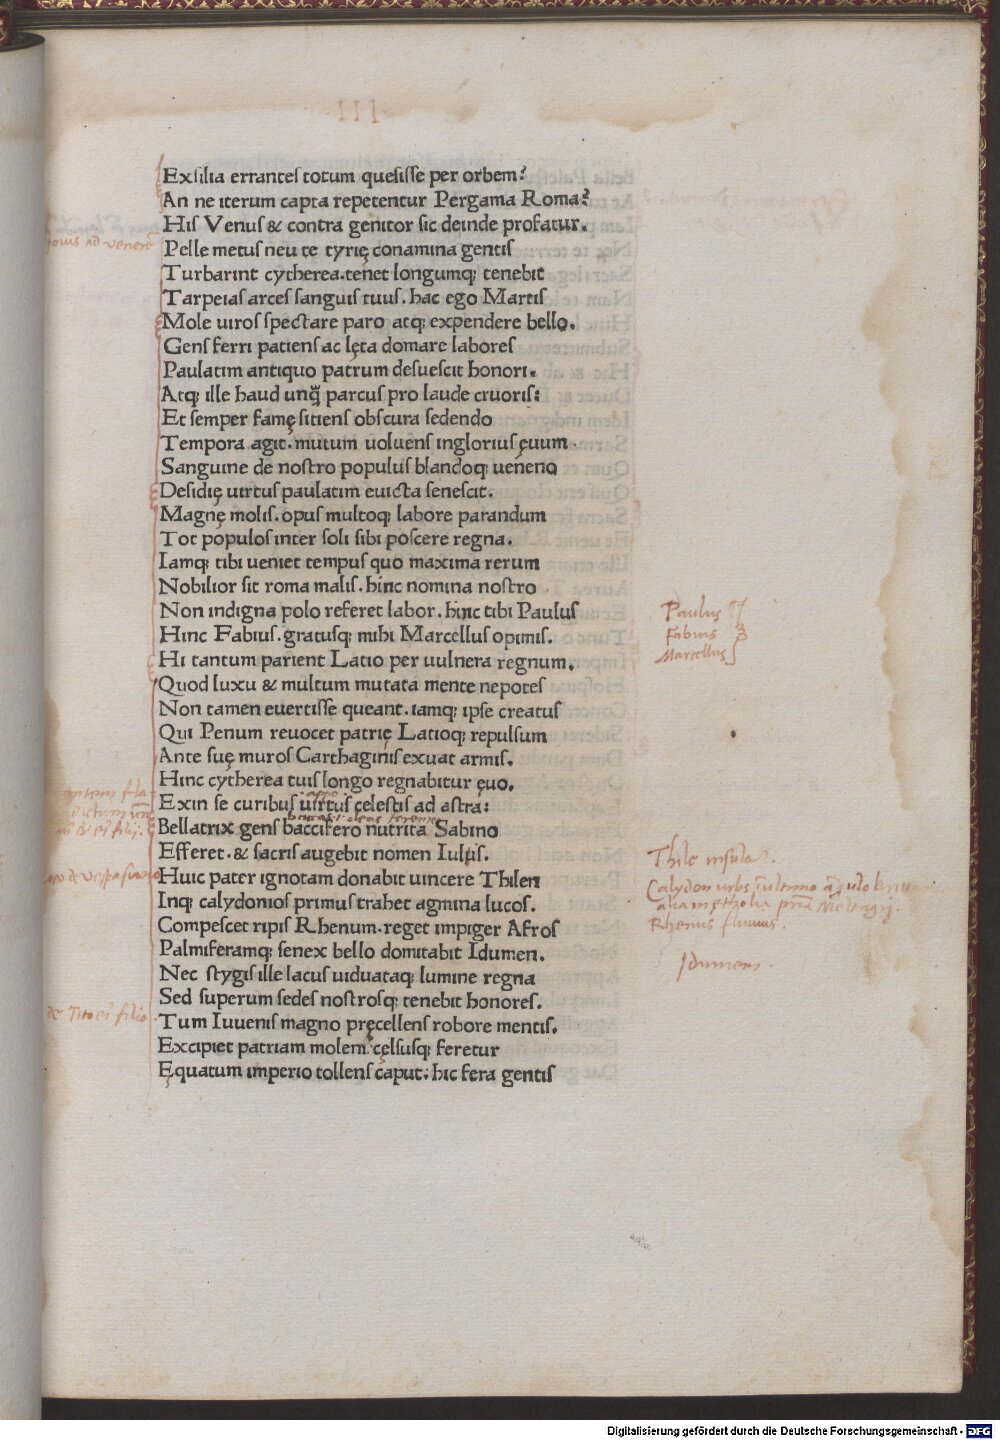 III
Exsilia errantes totum quesisse per orbem?
An ne iterum capta repetentur Pergama Roma?
His Venus & contra genitor sic deinde profatur.
iouis ad venerē
Pelle metus neu te tyrię conamina gentis
Turbarint cytherea. tenet longumq; tenebit
Tarpeias arces sanguis tuus. hac ego Martis
Mole uiros spectare paro atq; expendere bello.
Gens ferri patiens ac lęta domare labores
Paulatim antiquo patrum desuescit honori.
Atq; ille haud unq̃ parcus pro laude cruoris:
Et semper famę sitiens obscura sedendo
Tempora agit. mutum uoluens inglorius ęuum.
Sanguine de nostro populus blandoq; ueneno
Desidię uirtus paulatim euicta senescit.
Magnę molis. opus multoq; labore parandum
Tot populos inter soli sibi poscere regna.
Iamq; tibi ueniet tempus quo maxima rerum
Nobilior sit roma malis. hinc nomina nostro
Non indigna polo referet labor. hinc tibi Paulus
Paulus
Hinc Fabius. gratusq; mihi Marcellus opimis.
Fabius
Hi tantum parient Latio per uulnera regnum.
Marcellus
Quod luxu & multum mutata mente nepotes
Non tamen euertisse queant. iamq; ipse creatus
Qui Penum reuocet patrię Latioq; repulsum
Ante suę muros Carthaginis exuat armis.
Hinc cytherea tuis longo regnabitur ęuo.
Exin se curibus uirtus celestis ad astra:
Bellatrix gens baccifero nutrita Sabino
Efferet. & sacris augebit nomen Iulus.
Thile insula.
Huic pater ignotam donabit uincere Thilen
de vespasiano
Inq; calydonios primus trahet agmina lucos.
Calydon urbs
Compescet ripis Rhenum. reget impiger Afros
Rhenus fluuius.
Palmiferamq; senex bello domitabit Idumen.
Idumem.
Nec stygis ille lacus uiduataq; lumine regna
Sed superum sedes nostrosq; tenebit honores.
Tum Iuuenis magno pręcellens robore mentis.
de Tito ei filio
Excipiet patriam molem. cęlsusq; feretur
Ęquatum imperio tollens caput: hic fera gentis
Digitalisierung gefördert durch die Deutsche Forschungsgemeinschaft - DFG